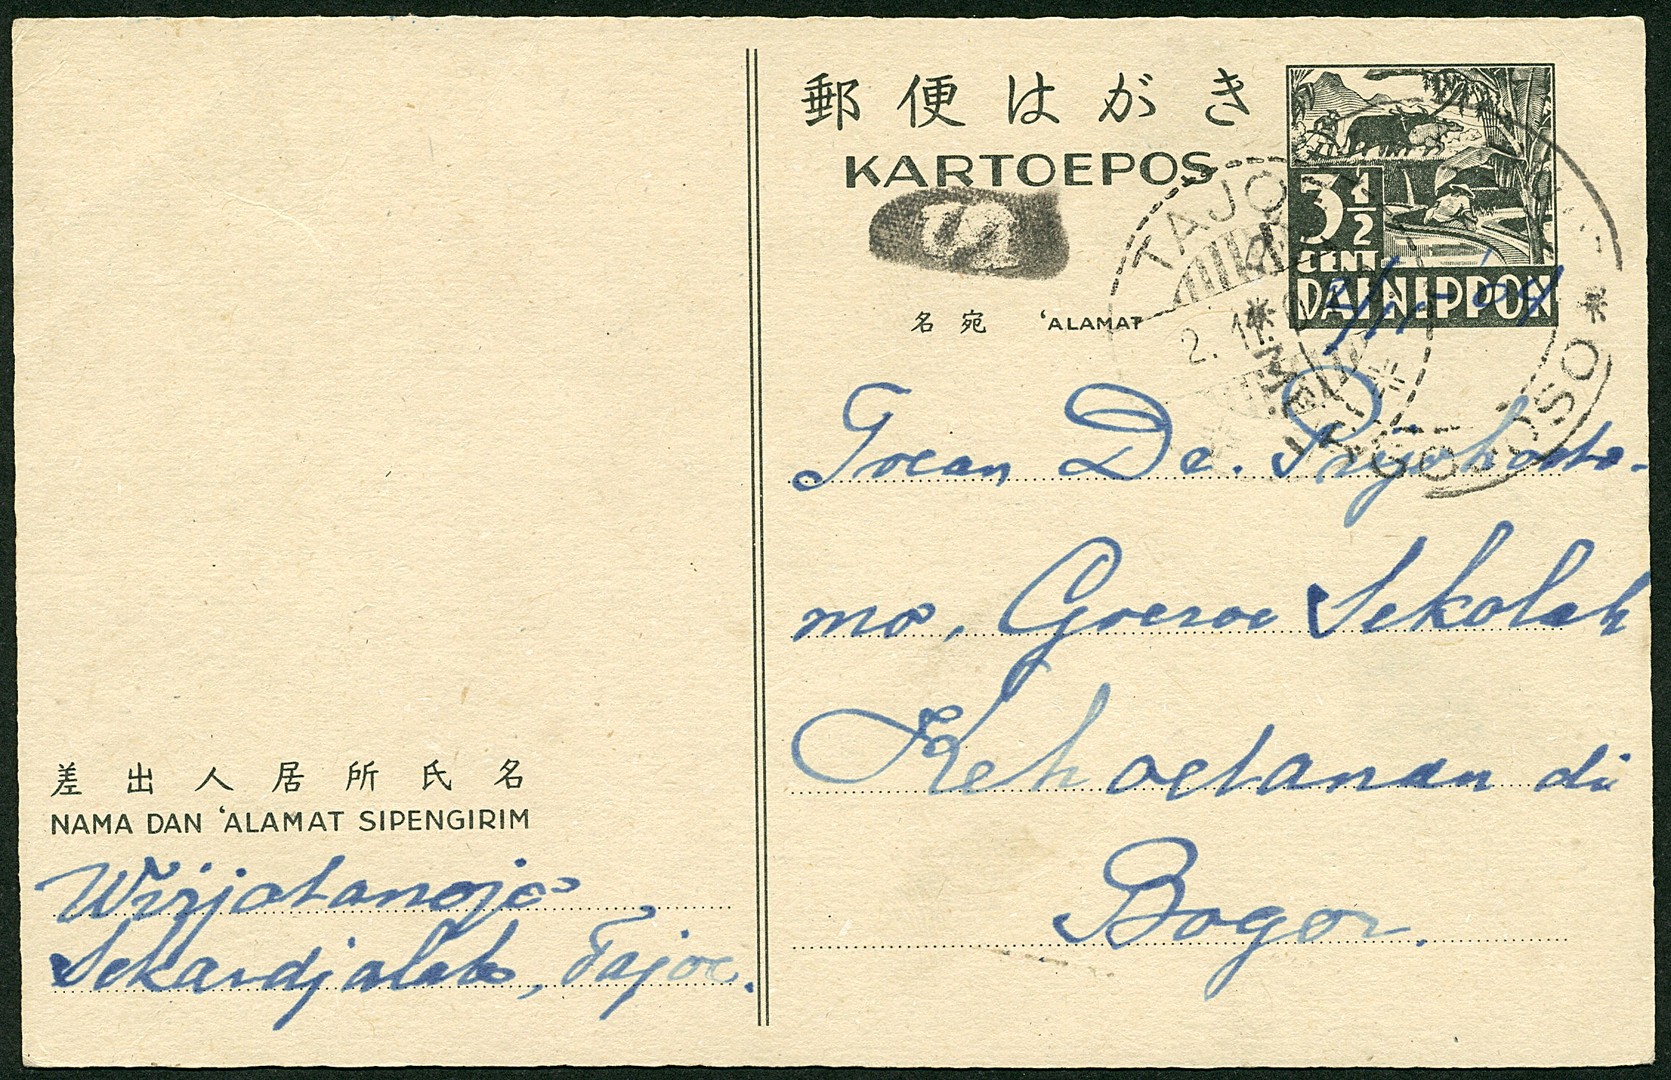 郵便はがき
KARTOEPOS
3 1/2
CENT
DAI NIPPON
名宛 'ALAMAT
TAJOE
2.
SOSO
Toean De. Prijohoeto-
mo, Goeroe Sekolah
Kehoetanan di
Bogor.
差出人居所氏名
NAMA DAN 'ALAMAT SIPENGIRIM
Wirjatanojo
Sekardjalak, Tajoe.